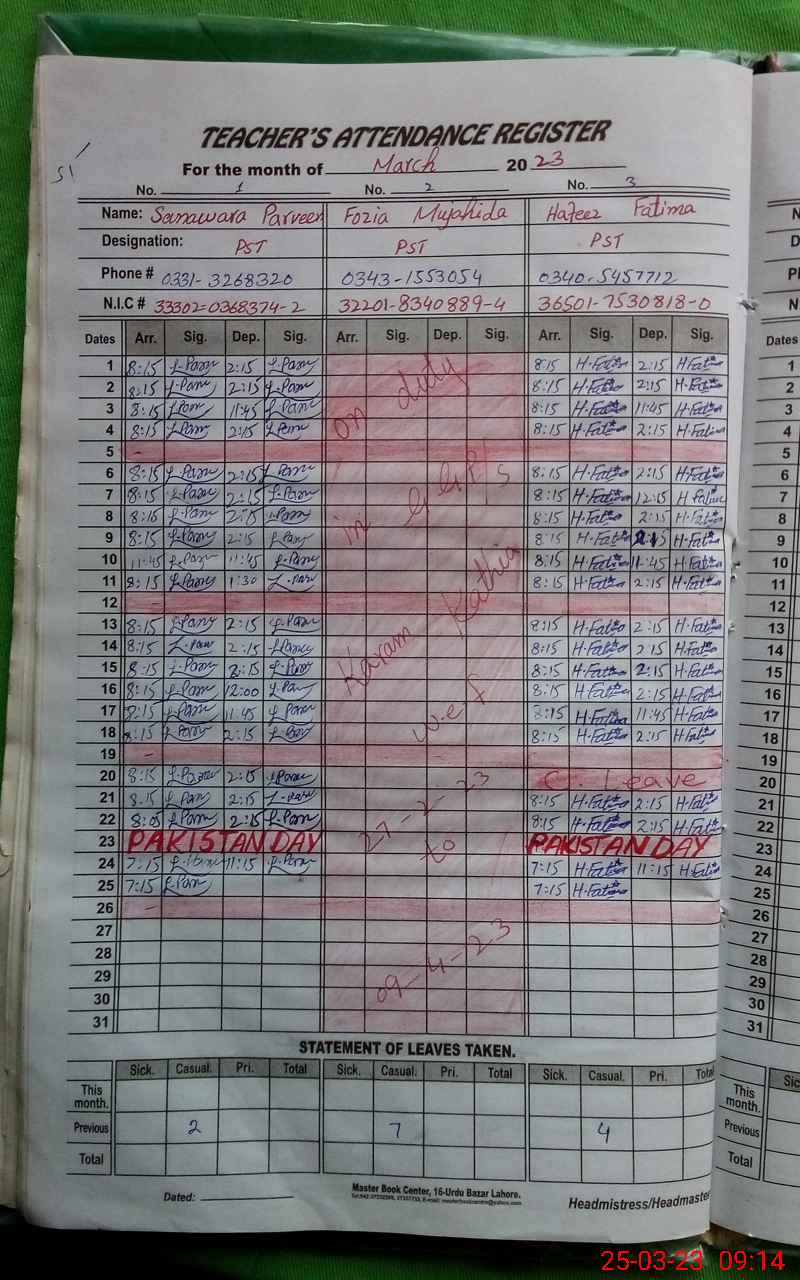 TEACHER'S ATTENDANCE REGISTER
For the month of March 2023
No. 1 No. 2 No. 3
Name: Sanawara Parveen Fozia Mujahida Hafeez Fatima
Designation: PST PST PST
Phone # 0331-3268320 0343-1553054 0340-5457712
N.I.C # 33302-0368374-2 32201-8340889-4 36501-7530818-0
Dates Arr. Sig. Dep. Sig. Arr. Sig. Dep. Sig. Arr. Sig. Dep. Sig.
1 8:15 2:15 8:15 H·Fatima 2:15 H·Fatima
2 8:15 2:15 8:15 H·Fatima 2:15 H·Fatima
3 8:15 11:45 8:15 H·Fatima 11:45 H·Fatima
4 8:15 2:15 8:15 H·Fatima 2:15 H·Fatima
5 -
6 8:15 2:15 8:15 H·Fatima 2:15 H·Fatima
7 8:15 2:15 8:15 H·Fatima 12:15 H Fatima
8 8:15 2:15 8:15 H·Fatima 2:15 H·Fatima
9 8:15 2:15 8:15 H·Fatima 2:15 H·Fatima
10 11:45 11:45 8:15 H·Fatima 11:45 H·Fatima
11 8:15 1:30 8:15 H·Fatima 2:15 H·Fatima
12 -
13 8:15 2:15 8:15 H·Fatima 2:15 H·Fatima
14 8:15 2:15 8:15 H·Fatima 2:15 H·Fatima
15 8:15 2:15 8:15 H·Fatima 2:15 H·Fatima
16 8:15 12:00 8:15 H·Fatima 2:15 H·Fatima
17 8:15 11:45 8:15 H·Fatima 11:45 H·Fatima
18 8:15 2:15 8:15 H·Fatima 2:15 H·Fatima
19 -
20 8:15 2:15 C. Leave
21 8:15 2:15 8:15 H·Fatima 2:15 H·Fatima
22 8:05 2:15 8:15 H·Fatima 2:15 H·Fatima
23 PAKISTAN DAY PAKISTAN DAY
24 7:15 11:15 7:15 H·Fatima 11:15 H·Fatima
25 7:15 7:15 H·Fatima
26 -
27
28
29
30
31
on duty
in G G P/S
Karam Kathia
w.e.f
27-2-23
to
09-4-23
STATEMENT OF LEAVES TAKEN.
Sick. Casual. Pri. Total Sick. Casual. Pri. Total Sick. Casual. Pri. Total
This month.
Previous 2 7 4
Total
Dated:
Master Book Center, 16-Urdu Bazar Lahore.
Headmistress/Headmaster
Dates
1
2
3
4
5
6
7
8
9
10
11
12
13
14
15
16
17
18
19
20
21
22
23
24
25
26
27
28
29
30
31
This month.
Previous
Total
25-03-23 09:14